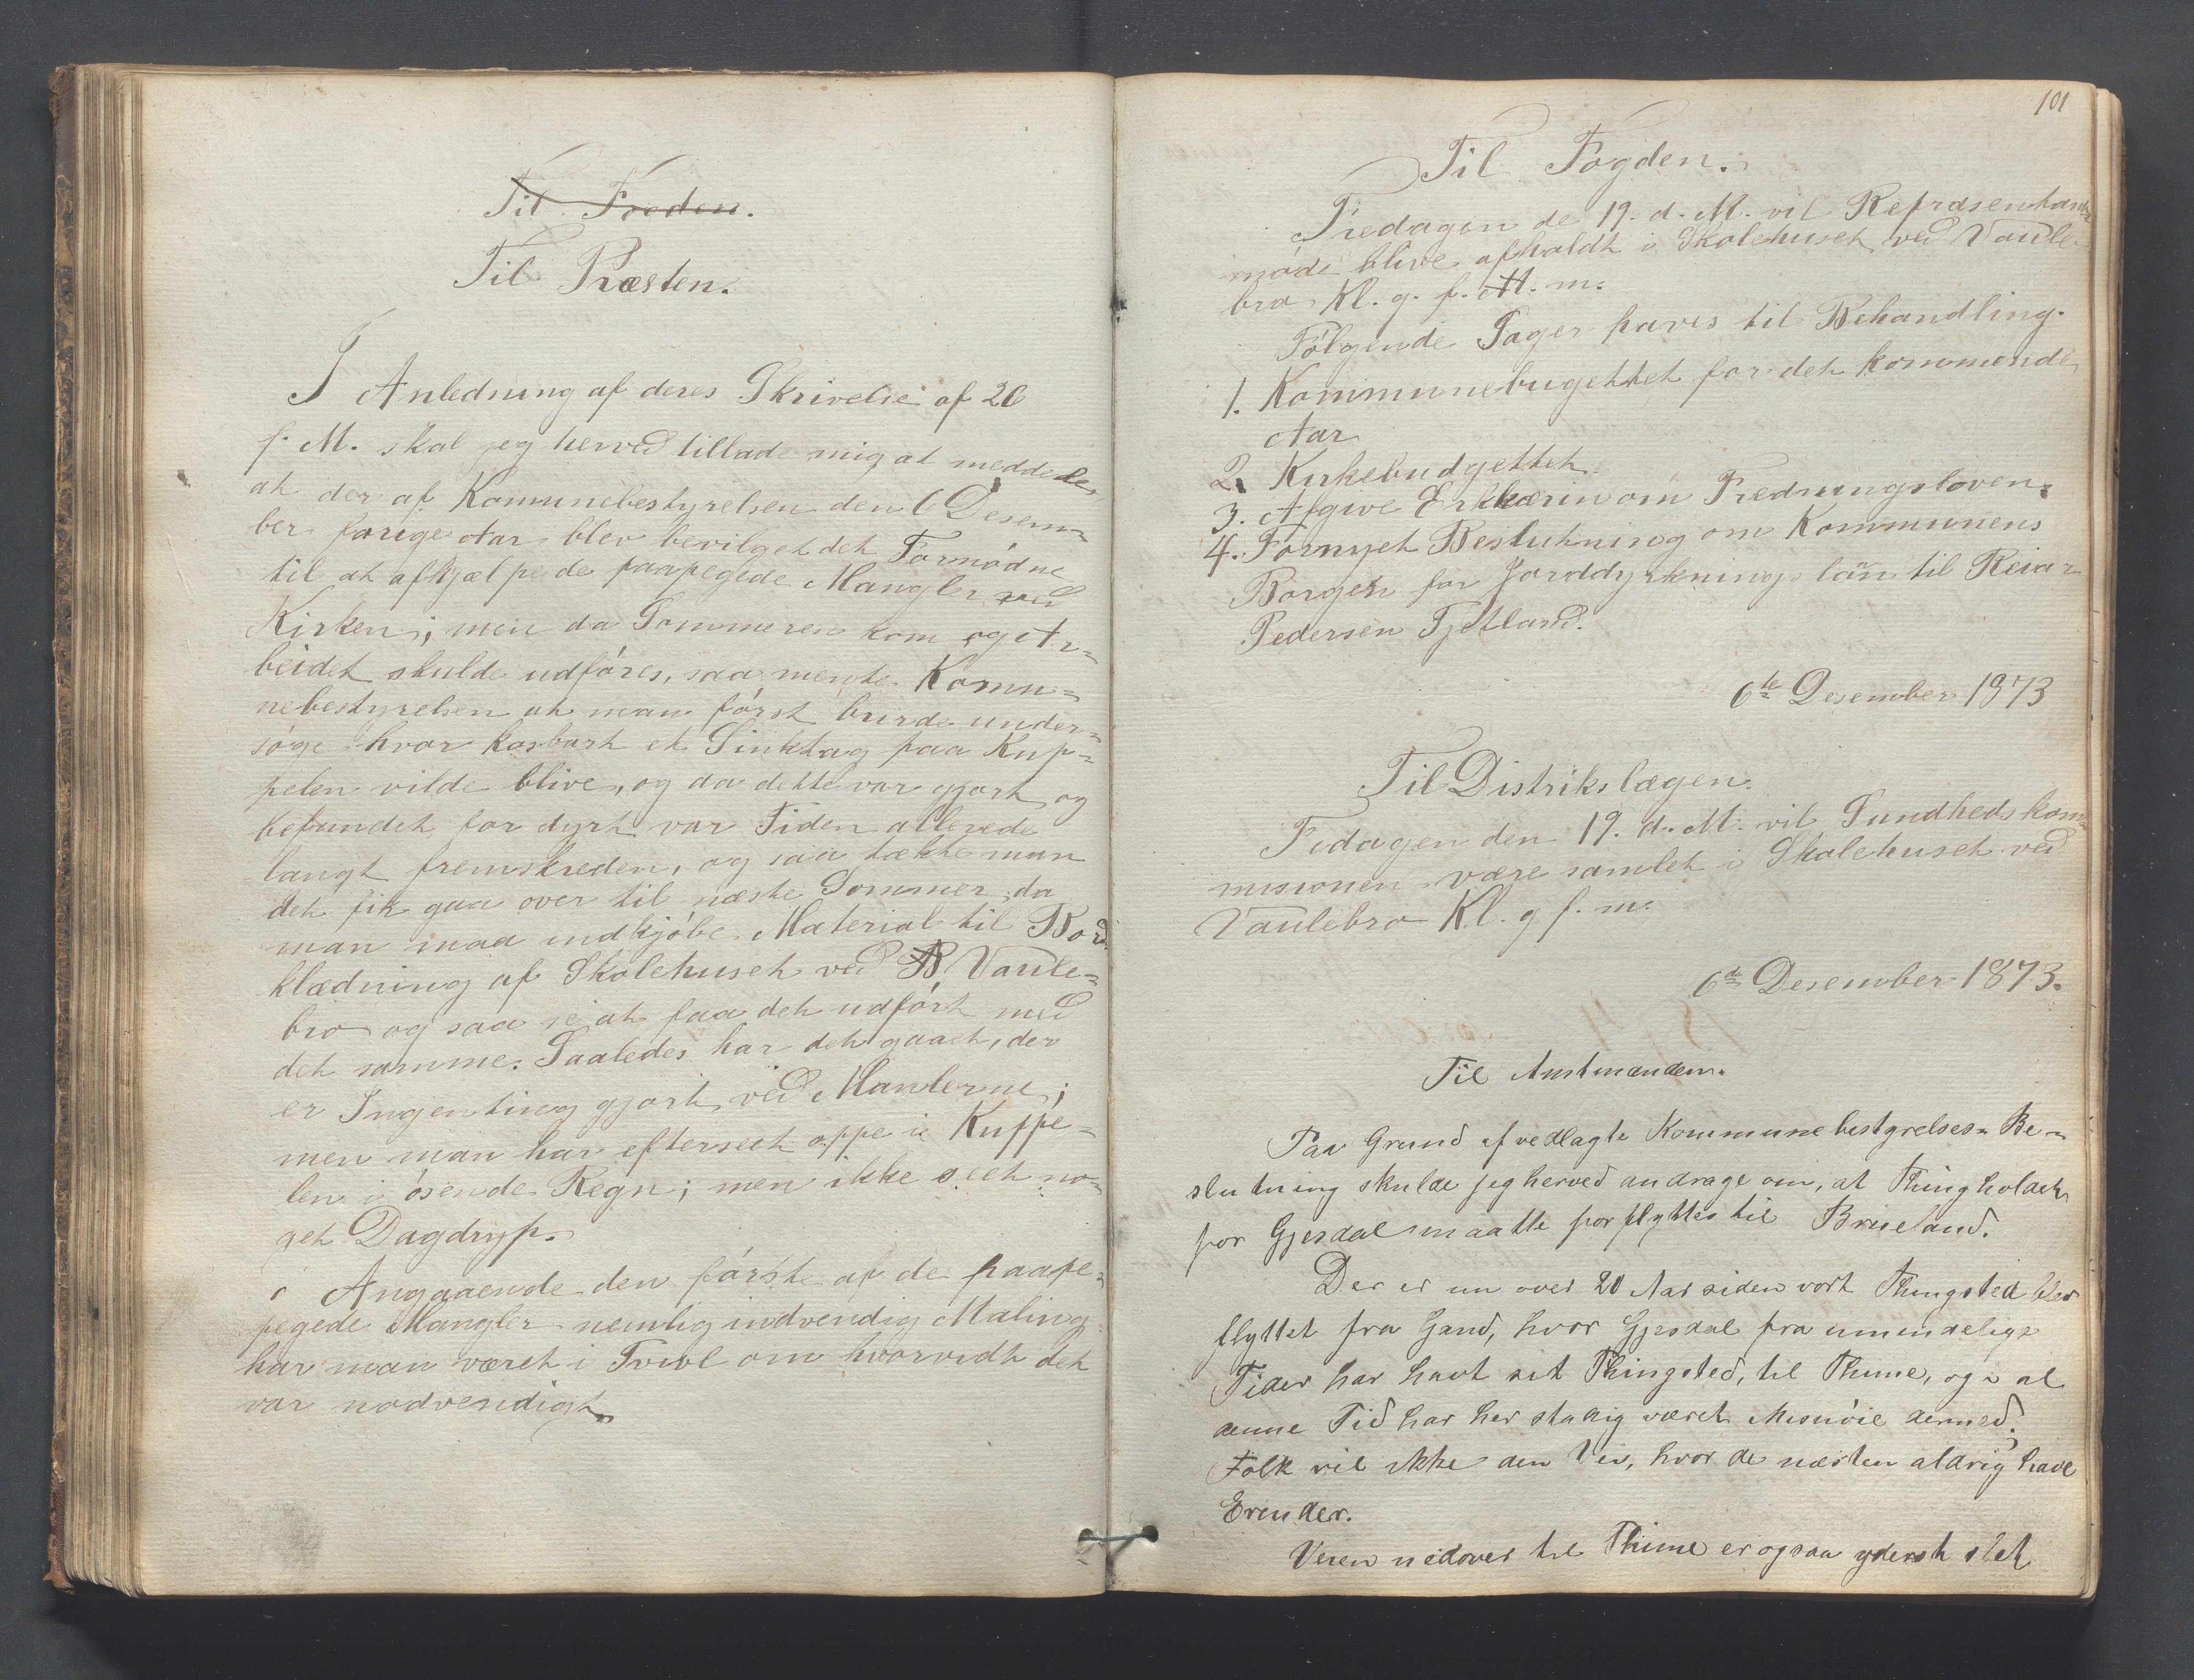 Til Fogden.
Til Præsten.
I Anledning af deres Skrivelse af 20
f. M. skal jeg herved tillade mig at meddele,
at der af Komunebestyrelsen den 6 Desem=
ber forige Aar blev bevilget det Fornødne
til at afhjælpe de paapegede Mangler ved
Kirken; men da Sommeren kom og Ar=
beidet skulde udføres, saa mente Komu=
nebestyrelsen at man først burde under=
søge hvor kosbart et Sinktag paa Kup=
pelen vilde blive, og da dette var gjort og
befundet for dyrt var Tiden allerede
langt fremskreden, og saa tækte man
det fik gaa over til næste Sommer, da
man maa indkjøbe Material til Bord
klædning af Skolehuset ved B Vaule=
bro og saa se at faa det udført med
det samme. Saaledes har det gaaet, der
er Ingenting gjort ved Manlerne;
men man har efterseet oppe i Kuppe=
len i øsende Regn; men ikke seet no=
get Dagdryp.
Angaaende den første af de paape=
pegede Mangler nemlig indvendig Maling
har man været i Tvivl om hvorvidt det
var nødvendigt.
101
Til Fogden.
Fredagen de 19. d. M. vil Repræsentant
møde blive afholdt i Skolehuset ved Vaule
bro Kl. 9. f. M. m.
Følgende Sager haves til Behandling.
1. Kommunebugettet for det kommende
Aar
2. Kirkebudgettet
3. Afgive Erklærin om Fredningsloven.
4. Fornyet Beslutning om Kommunens
Borgen for Jorddyrkningslån til Reiar
Pedersen Fjetland.
6te Desember 1873
Til Distrikslægen.
Fedagen den 19. d. M. vil Sundhedskom=
misionen være samlet i Skolehuset ved
Vaulebro Kl. 9 f. m.
6te Desember 1873.
Til Amtmanden.
Paa Grund af vedlagte Kommunebestyrelses= Be=
slutning skulde jeg herved andrage om, at Thingholdet
for Gjesdal maatte forflyttes til Brueland.
Der er nu over 20 Aar siden vort Thingsted blev
flyttet fra Gand, hvor Gjesdal fra umindelige
Tider har havt sit Thingsted, til Thime, og i al
denne Tid har her stadig været Misnøie dermed.
Folk vil ikke den Vei, hvor de næsten aldrig have
Erender.
Veien nedover til Thime er ogsaa yderst slet